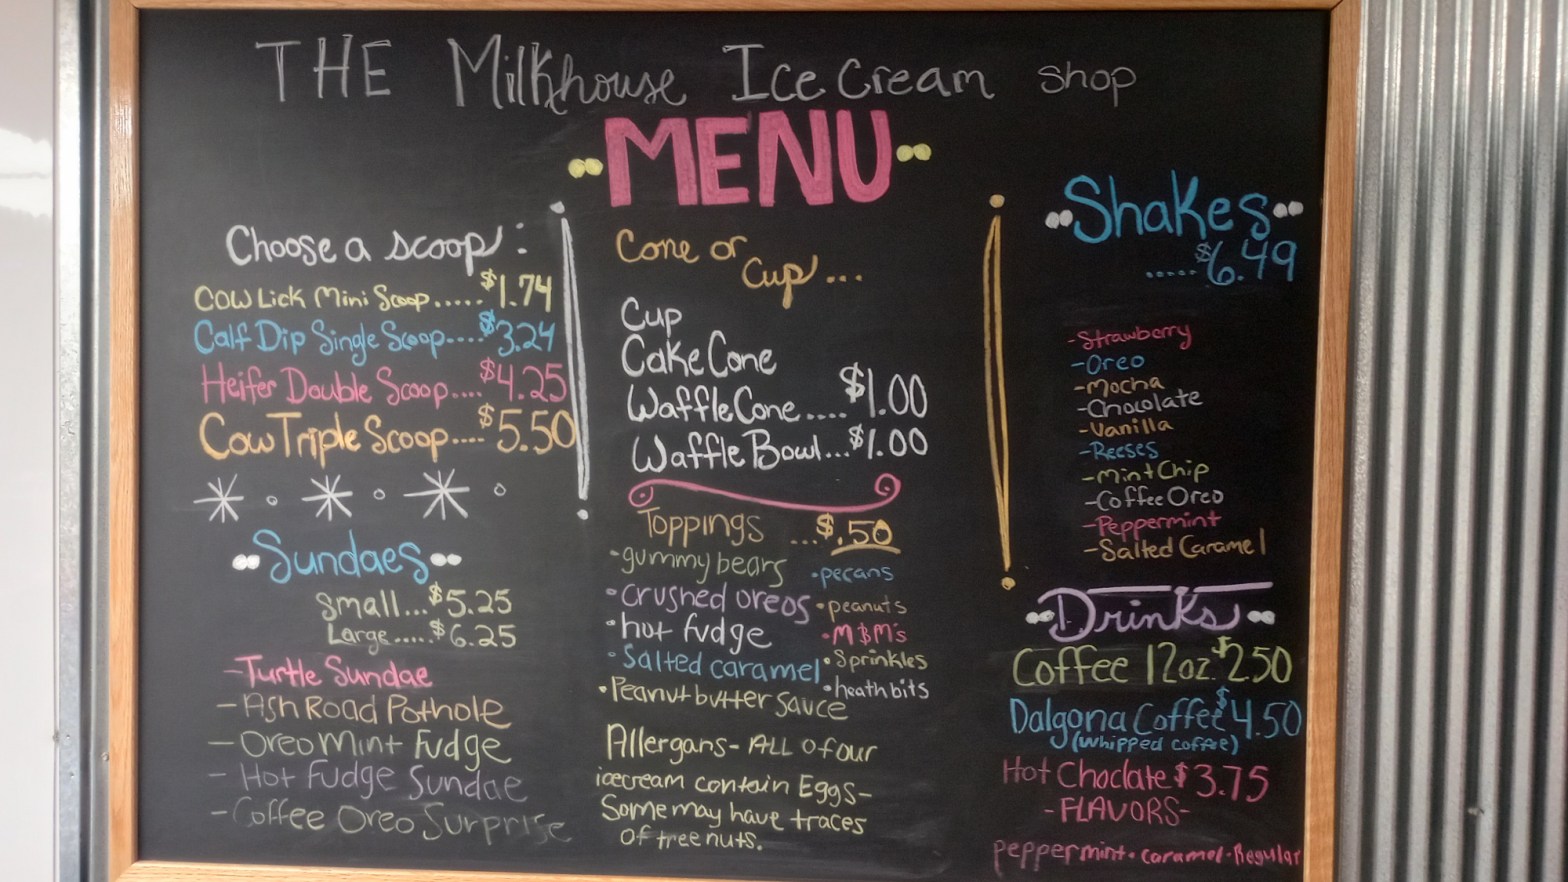 THE Milkhouse Ice Cream Shop
MENU
Choose a scoop:
Cow Lick Mini Scoop..... $1.74
Calf Dip Single Scoop.... $3.24
Heifer Double Scoop.... $4.25
Cow Triple Scoop.... $5.50
Sundaes
Small... $5.25
Large..... $6.25
- Turtle Sundae
- Ash Road Pothole
- Oreo Mint Fudge
- Hot Fudge Sundae
- Coffee Oreo Surprise
Cone or
Cup...
Cup
Cake Cone
Waffle Cone..... $1.00
Waffle Bowl... $1.00
Toppings ... $.50
• gummy bears
• crushed oreos
• hot fudge
• Salted caramel
• Peanut butter sauce
• pecans
• peanuts
• M&M's
• Sprinkles
• heath bits
Allergans - ALL of our
icecream contain Eggs -
Some may have traces
Of tree nuts.
Shakes
..... $6.49
- Strawberry
- Oreo
- Mocha
- Chocolate
- Vanilla
- Reeses
- Mint Chip
- Coffee Oreo
- Peppermint
- Salted Caramel
Drinks
Coffee 12oz. $2.50
Dalgona Coffee $4.50
(whipped coffee)
Hot Choclate $3.75
- FLAVORS -
peppermint • caramel • Regular